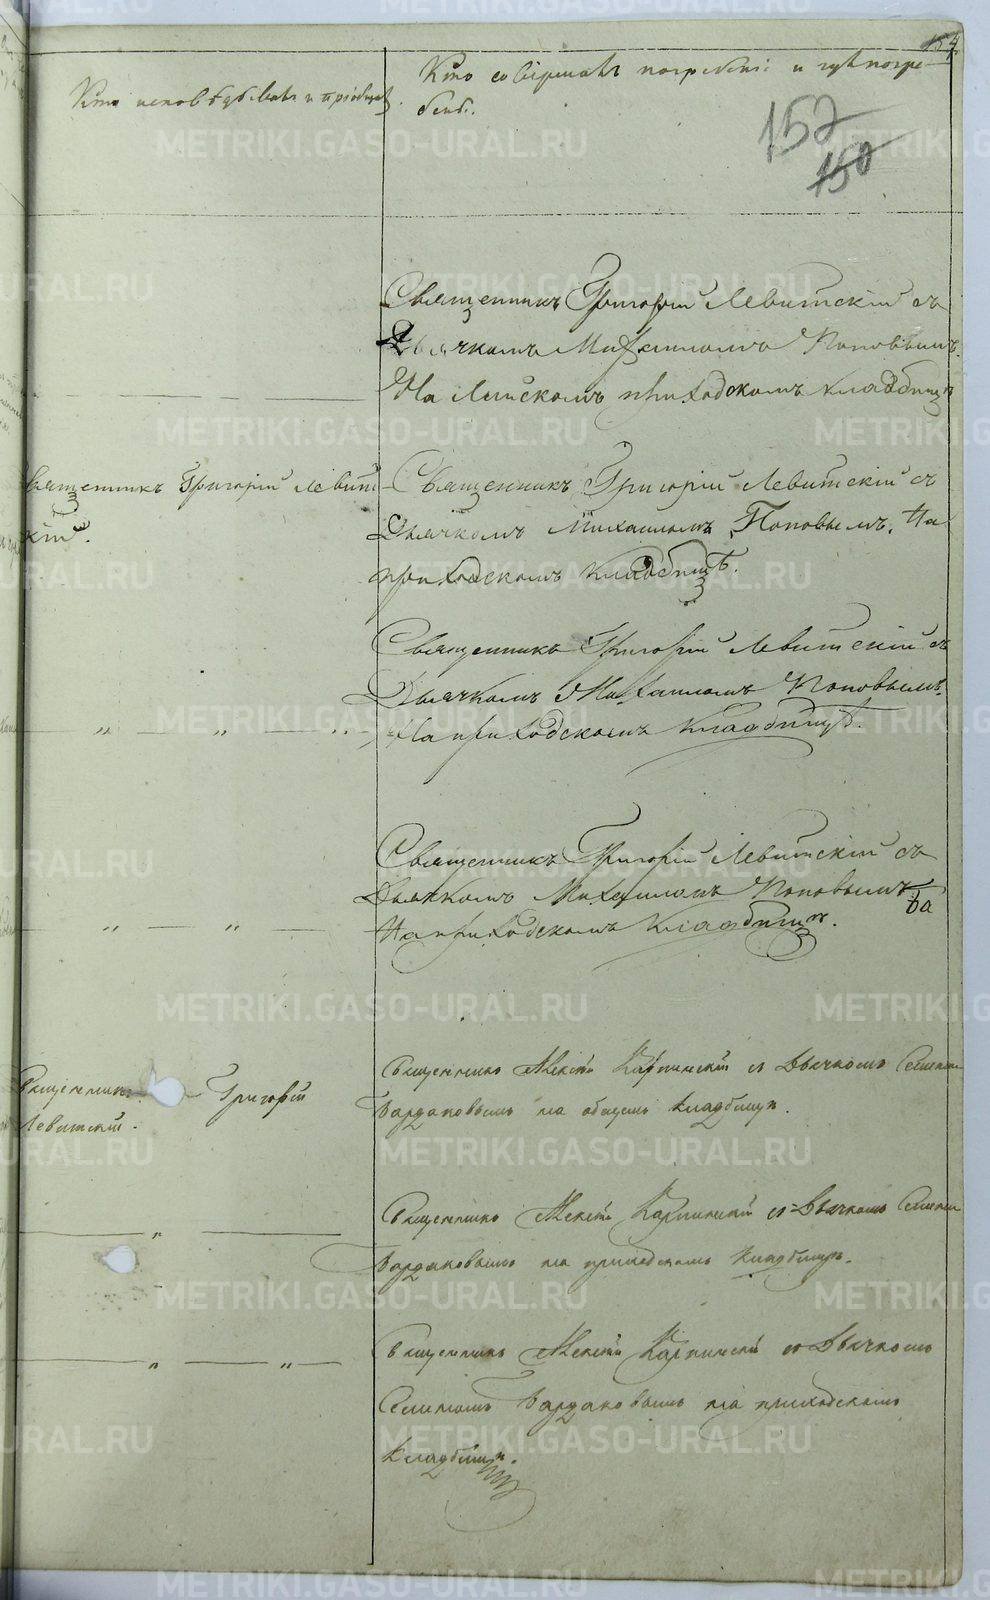 154
Кто исповѣдывалъ и пріобщалъ.
Кто совершалъ погребеніе и гдѣ погре-
бены.
152
150
Священникъ Григорій Левитскій съ
Дьячкомъ Михаиломъ Поповымъ.
На приходскомъ кладбищѣ
Священникъ Григорій Левит
скій.
Священникъ Григорій Левитскій съ
Дьячкомъ Михаиломъ Поповымъ. На
приходскомъ кладбищѣ.
Священникъ Григорій Левитскій съ
Дьячкомъ Михаиломъ Поповымъ.
На приходскомъ кладбищѣ.
Священникъ Григорій Левитскій съ
Дьячкомъ Михаиломъ Поповымъ
На приходскомъ кладбищѣ.
Священникъ Григорій
Левитскій.
Священникъ Алексѣй Карпинскій съ Дьячкомъ Симеон
Бардаковымъ на общемъ кладбищѣ.
Священникъ Алексѣй Карпинскій съ Дьячкомъ Симеон
Бардаковымъ на приходскомъ кладбищѣ.
Священникъ Алексѣй Карпинскій съ Дьячкомъ
Симіономъ Бардаковымъ на приходскомъ
кладбищѣ.
METRIKI.GASO-URAL.RU